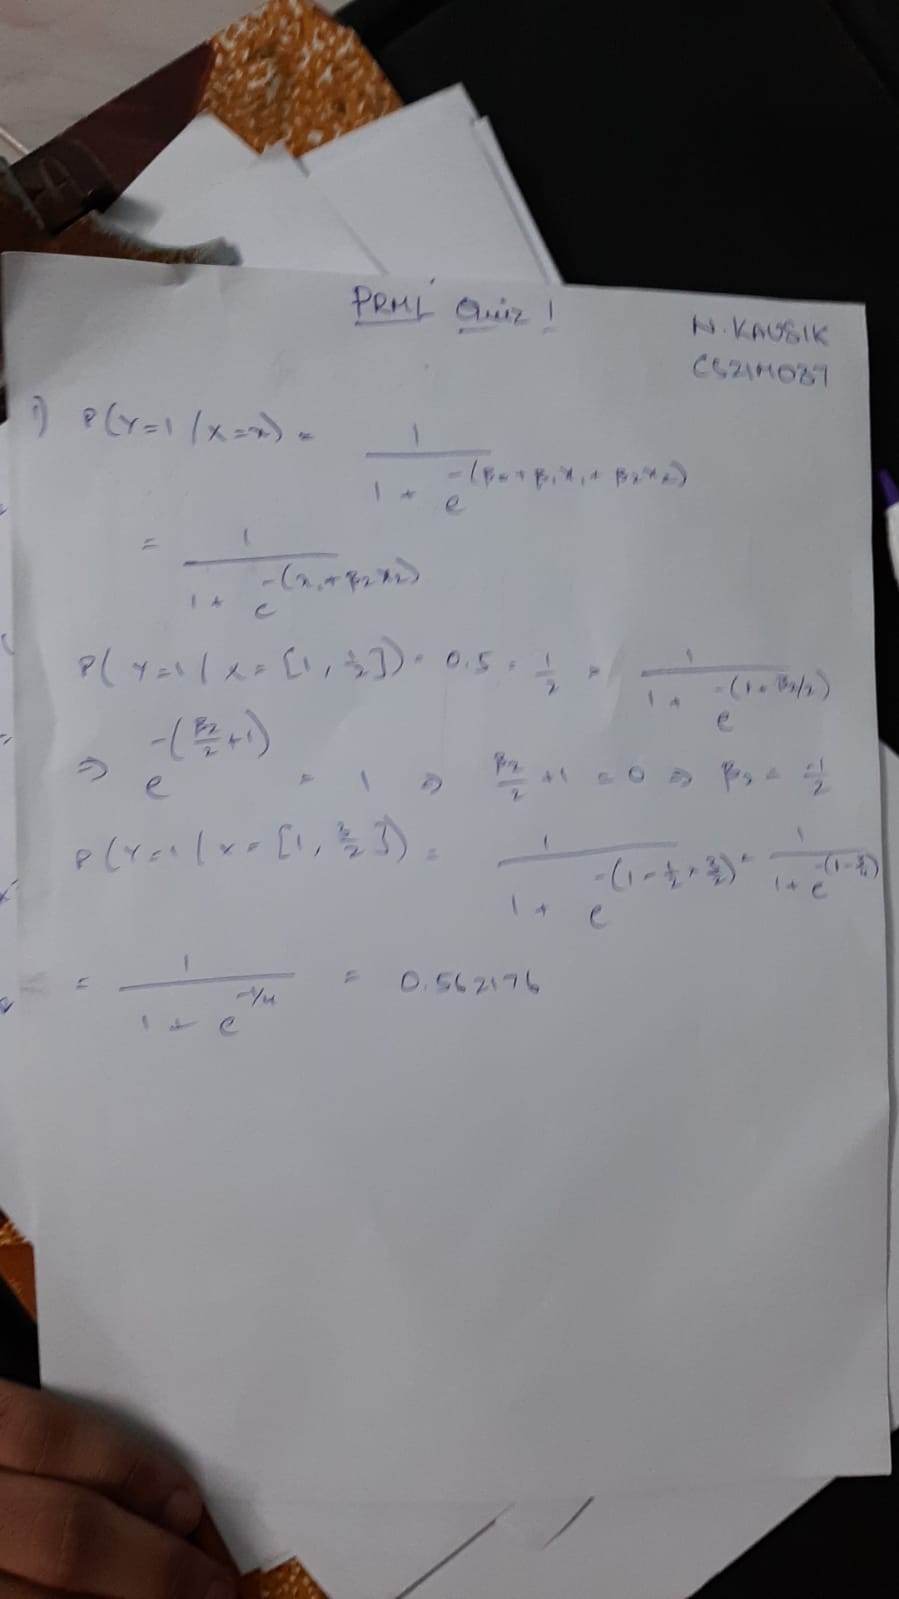 PRML Quiz 1
N. KAUSIK
CS21M037
1) P(Y=1 / X=x) = 1 / (1 + e^-(β0 + β1x1 + β2x2))
= 1 / (1 + e^-(x1 + β2x2))
P(Y=1 | X = [1, 1/2]) = 0.5 = 1/2 = 1 / (1 + e^-(1 + β2/2))
⇒ e^-(β2/2 + 1) = 1 ⇒ β2/2 + 1 = 0 ⇒ β2 = -1/2
P(Y=1 | X = [1, 3/2]) = 1 / (1 + e^-(1 - 1/2 × 3/2)) = 1 / (1 + e^-(1 - 3/4))
= 1 / (1 + e^-1/4) = 0.562176